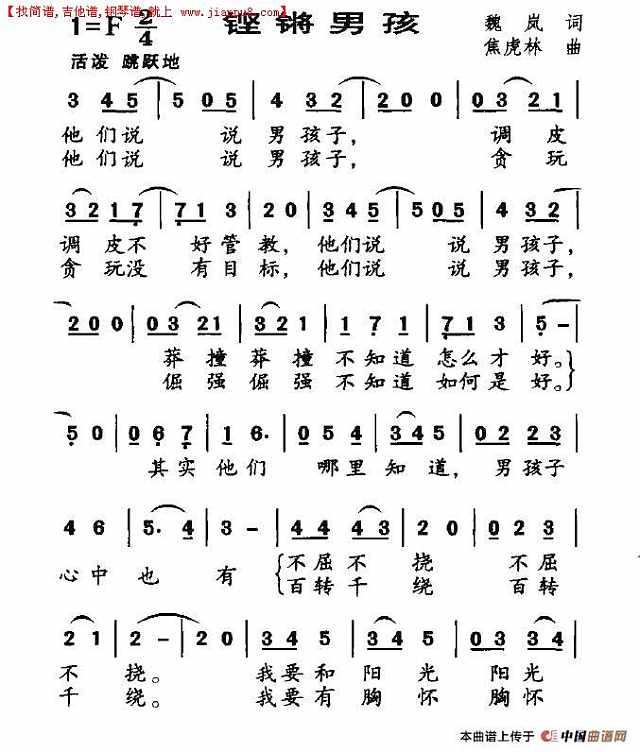 【找简谱,吉他谱,钢琴谱,就上 www.jianpu8.com】
铿锵男孩
1=F 2/4
魏岚 词
焦虎林 曲
活泼 跳跃地
3 4 5 | 5 0 5 | 4 3 2 | 2 0 0 | 0 3 2 1 |
他们说 说男孩子, 调皮
他们说 说男孩子, 贪玩
3 2 1 7 | 7 1 3 | 2 0 | 3 4 5 | 5 0 5 | 4 3 2 |
调皮不 好管教, 他们说 说男孩子,
贪玩没 有目标, 他们说 说男孩子,
2 0 0 | 0 3 2 1 | 3 2 1 | 1 7 1 | 7 1 3 | 5 - |
莽撞莽撞不知道怎么才好。
倔强倔强不知道如何是好。
5 0 | 0 6 7 | 1 6· | 0 5 4 | 3 4 5 | 0 2 2 3 |
其实他们 哪里知道, 男孩子
4 6 | 5· 4 | 3 - | 4 4 4 3 | 2 0 | 0 2 3 |
心中也 有 不屈不 挠 不屈
百转千 绕 百转
2 1 | 2 - | 2 0 | 3 4 5 | 0 5 4 | 0 3 4 |
不挠。 我要和阳光 阳光
千绕。 我要有胸怀 胸怀
本曲谱上传于 中国曲谱网